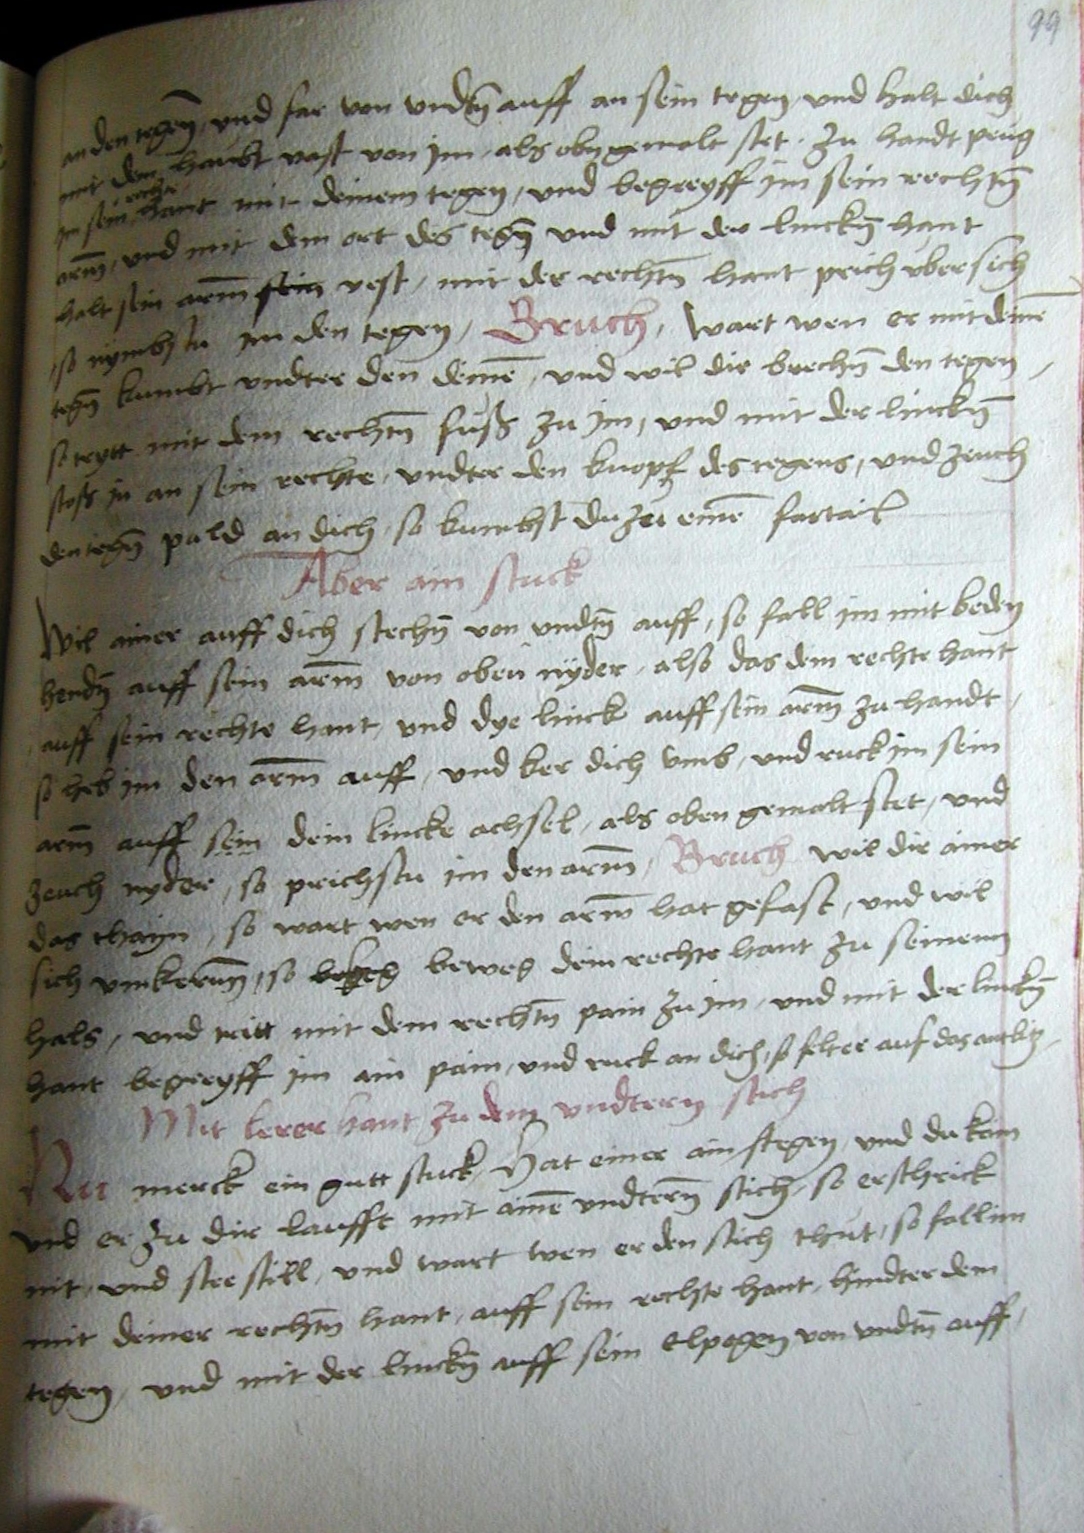 99
an den tegeñ, und far von undtñ auff an sein tegen, und halt dich
mit dem haubt vast von im, als oben gemolt stet. Zu handt peug
im sein rechte hant mit deinem tegen, und begreyff im sein rechtñ
arm̄, und mit dem ort des tegñ und mit der linckñ hant
halt sein arm̄ sein vest, mit der rechtñ hant prich ubersich
so nymbstu im den tegen, Bruch, Wart wen er mit deinē
tegñ kumbt undter den deinē, und wil dir brechñ den tegen,
so trytt mit dem rechtñ fuß zu im, und mit der linckñ
stoß in an sein rechte, undter den knopf des tegens, und zeuch
den tegñ pald an dich, so kumbst du zu einē fartail
Aber ain stuck
Wil ainer auff dich stechñ von undtñ auff, so fall im mit beden
hendñ auff sein arm̄ von oben nyder, also das dein rechte hant
auff sein rechte hant, und dye linck auff sein arm̄ zu handt,
so heb im den arm̄ auff, und ker dich umb, und ruck im sein
arm̄ auff sein dein lincke achsel, als oben gemolt stet, und
zeuch nyder, so prichstu im den arm̄, Bruch wil dir ainer
das thain, so wart wen er den arm̄ hat gefast, und wil
sich umkerenn, so beweg dein rechte hant zu seinem
hals, und tritt mit dem rechtñ pain zu im, und mit der linckñ
hant begreyff im ain pain, und ruck an dich, so felt er auf das antlitz,
Mit lerer hant zu dem undtern stich
Nu merck ein gutt stuck, Hat einer ain stegen, und du kain
und er zu dir laufft mit ainē undternn stich, so erschrick
nit, und stee still, und wart wen er den stich thut, so fall im
mit deiner rechtñ hant, auff sein rechte hant, hindter dem
tegen, und mit der linckñ auff sein elpogen von undtñ auff,